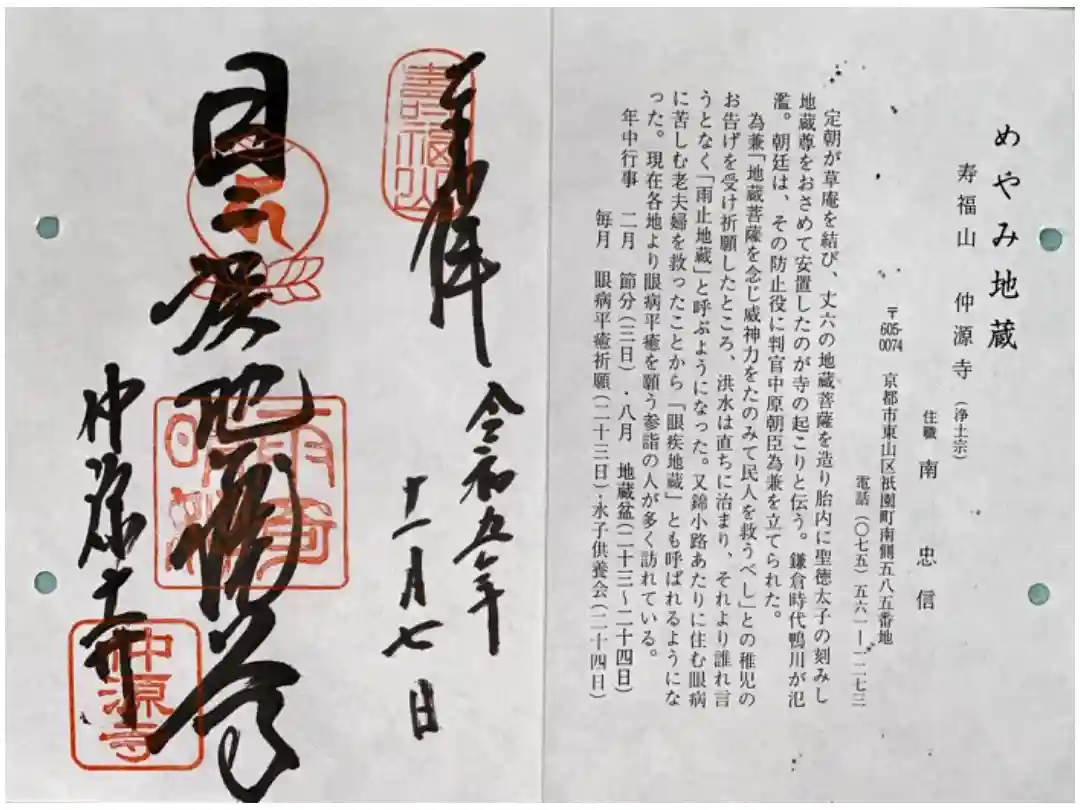 めやみ地蔵
寿福山 仲源寺(浄土宗)
住職 南 忠信
〒605-0074 京都市東山区祇園町南側五八五番地
電話(〇七五)五六一―一二七三
定朝が草庵を結び、丈六の地蔵菩薩を造り胎内に聖徳太子の刻みし
地蔵尊をおさめて安置したのが寺の起こりと伝う。鎌倉時代鴨川が氾
濫。朝廷は、その防止役に判官中原朝臣為兼を立てられた。
為兼「地蔵菩薩を念じ威神力をたのみて民人を救うべし」との稚児の
お告げを受け祈願したところ、洪水は直ちに治まり、それより誰れ言
うとなく「雨止地蔵」と呼ぶようになった。又錦小路あたりに住む眼病
に苦しむ老夫婦を救ったことから「眼疾地蔵」とも呼ばれるようにな
った。現在各地より眼病平癒を願う参詣の人が多く訪れている。
年中行事 二月 節分(三日)・八月 地蔵盆(二十三〜二十四日)
毎月 眼病平癒祈願(二十三日)・水子供養会(二十四日)
奉拝
壽福山
令和五年
十一月七日
地蔵尊
仲源寺
仲源寺